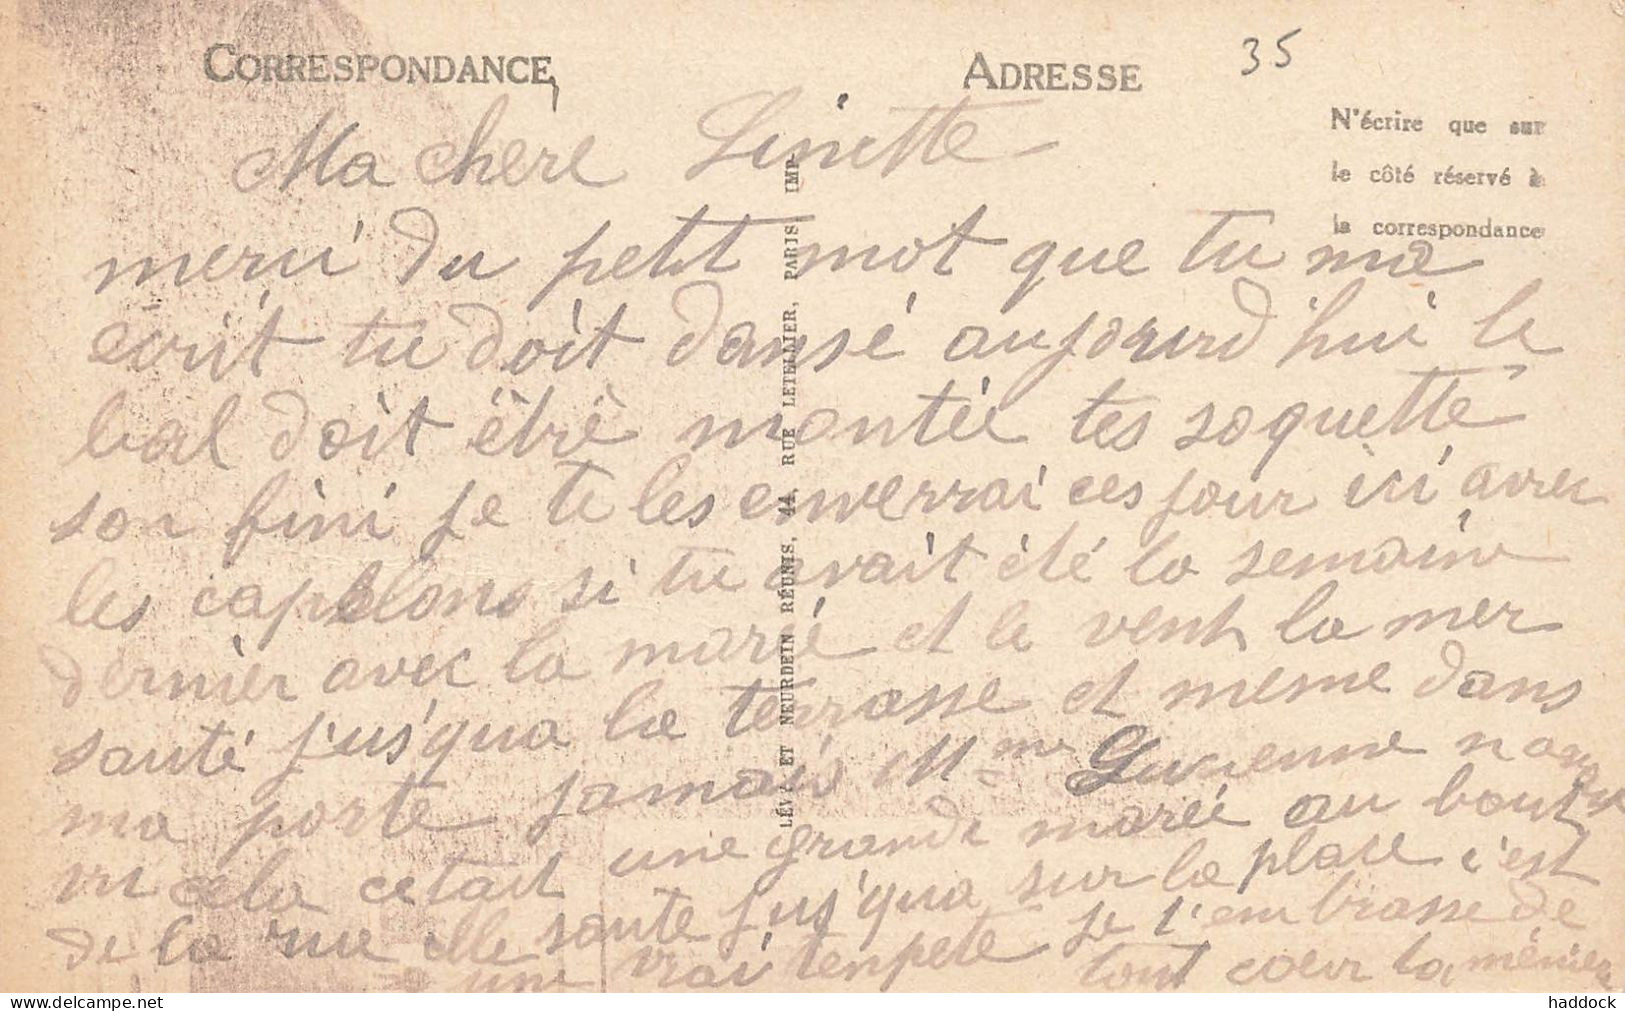 CORRESPONDANCE
ADRESSE
35
N'écrire que sur
le côté réservé à
la correspondance
LÉVY ET NEURDEIN RÉUNIS, 44, RUE LETELLIER, PARIS IMP.
Ma chere Linette
merci du petit mot que tu ma
ecrit tu doit dansé aujourd'hui le
bal doit être montée tes soquette
son fini je te les enverrai ces jour ici avec
les si tu avait été la semaine
dernier avec la marée et le vent la mer
sauté jusqua la terrasse et meme dans
ma porte jamais Mme Lucienne
vu cela cetait une grande marée au bout
de la rue elle saute jus'qua sur la place c'est
une vrai tenpete je t'embrasse de
tout cœur ta
haddock